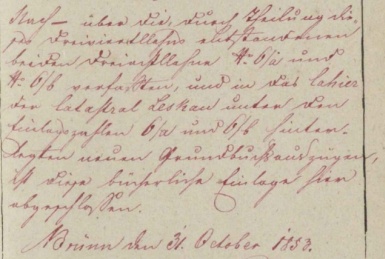 Nach über die, durch Theilung die-
ses Dreiviertllehns entstandenen
beiden Dreiachtllehne N. 6/a und
N. 6/b verfaßten, und in das Cahier
der Catastral Leskau unter den
Einlagszahlen 6/a und 6/b hinter-
legten neuen Grundbuchsauszügen,
ist diese bücherliche Einlage hier
abgeschlossen.
Brünn den 31. October 1853.